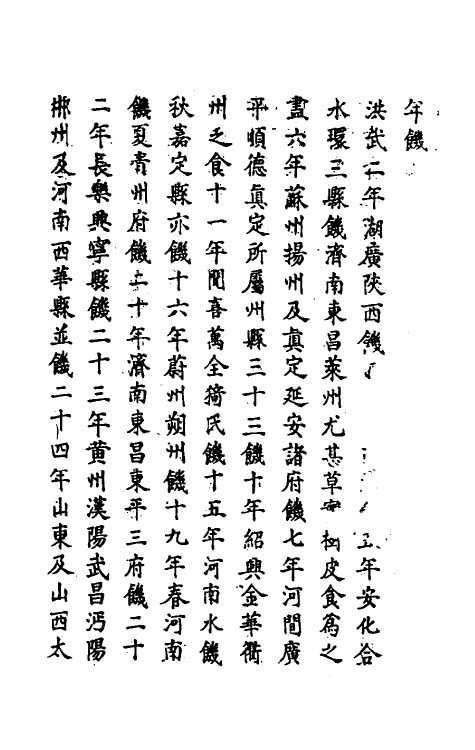 年饑
洪武二年湖廣陝西饑五年安化合
水環三縣饑濟南東昌萊州尤甚草實樹皮食爲之
盡六年蘇州揚州及眞定延安諸府饑七年河間廣
平順德眞定所屬州縣三十三饑十年紹興金華衢
州乏食十一年聞喜萬全猗氏饑十五年河南水饑
秋嘉定縣亦饑十六年蔚州朔州饑十九年春河南
饑夏青州府饑二十年濟南東昌東平三府饑二十
二年長樂興寧縣饑二十三年黃州漢陽武昌沔陽
郴州及河南西華縣並饑二十四年山東及山西太